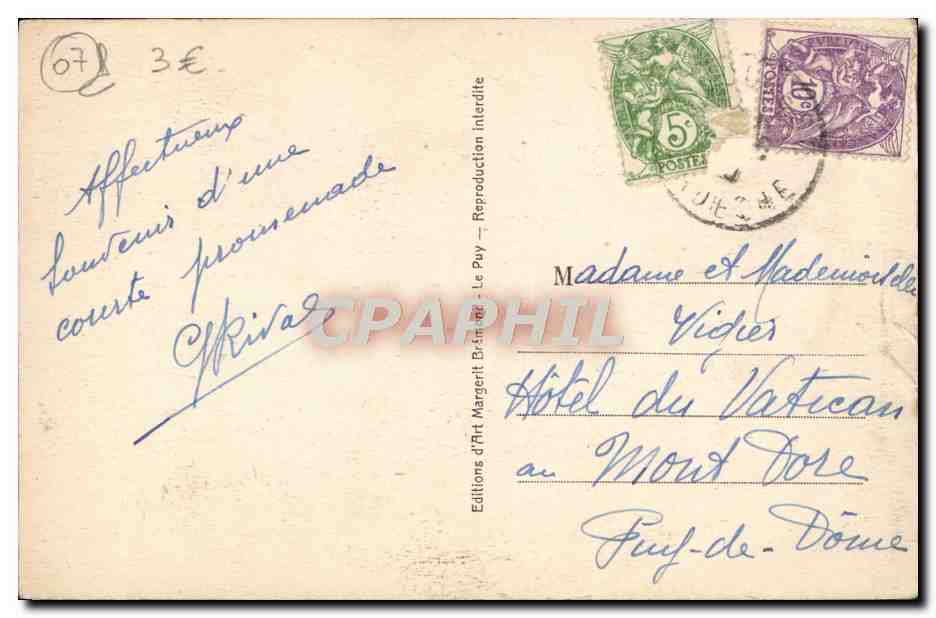 07
3€
Affectueux
souvenir d'une
courte promenade
GRival
CPAPHIL
Editions d'Art Margerit Brémond - Le Puy — Reproduction interdite
5c
POSTES
10c
POSTES
Madame et Mademoiselle
Vigier
Hôtel du Vatican
au Mont Dore
Puy-de-Dôme